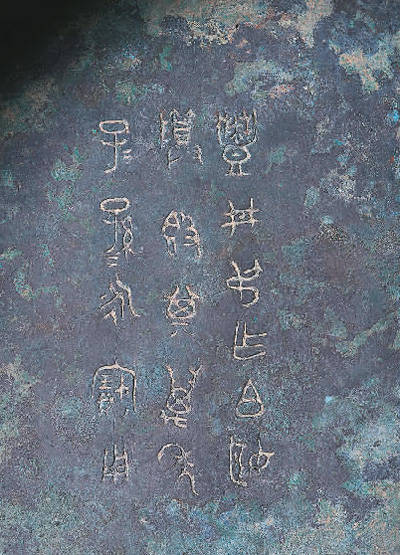 豐井叔乍白姬
尊簋其萬年
子孫=永寶用